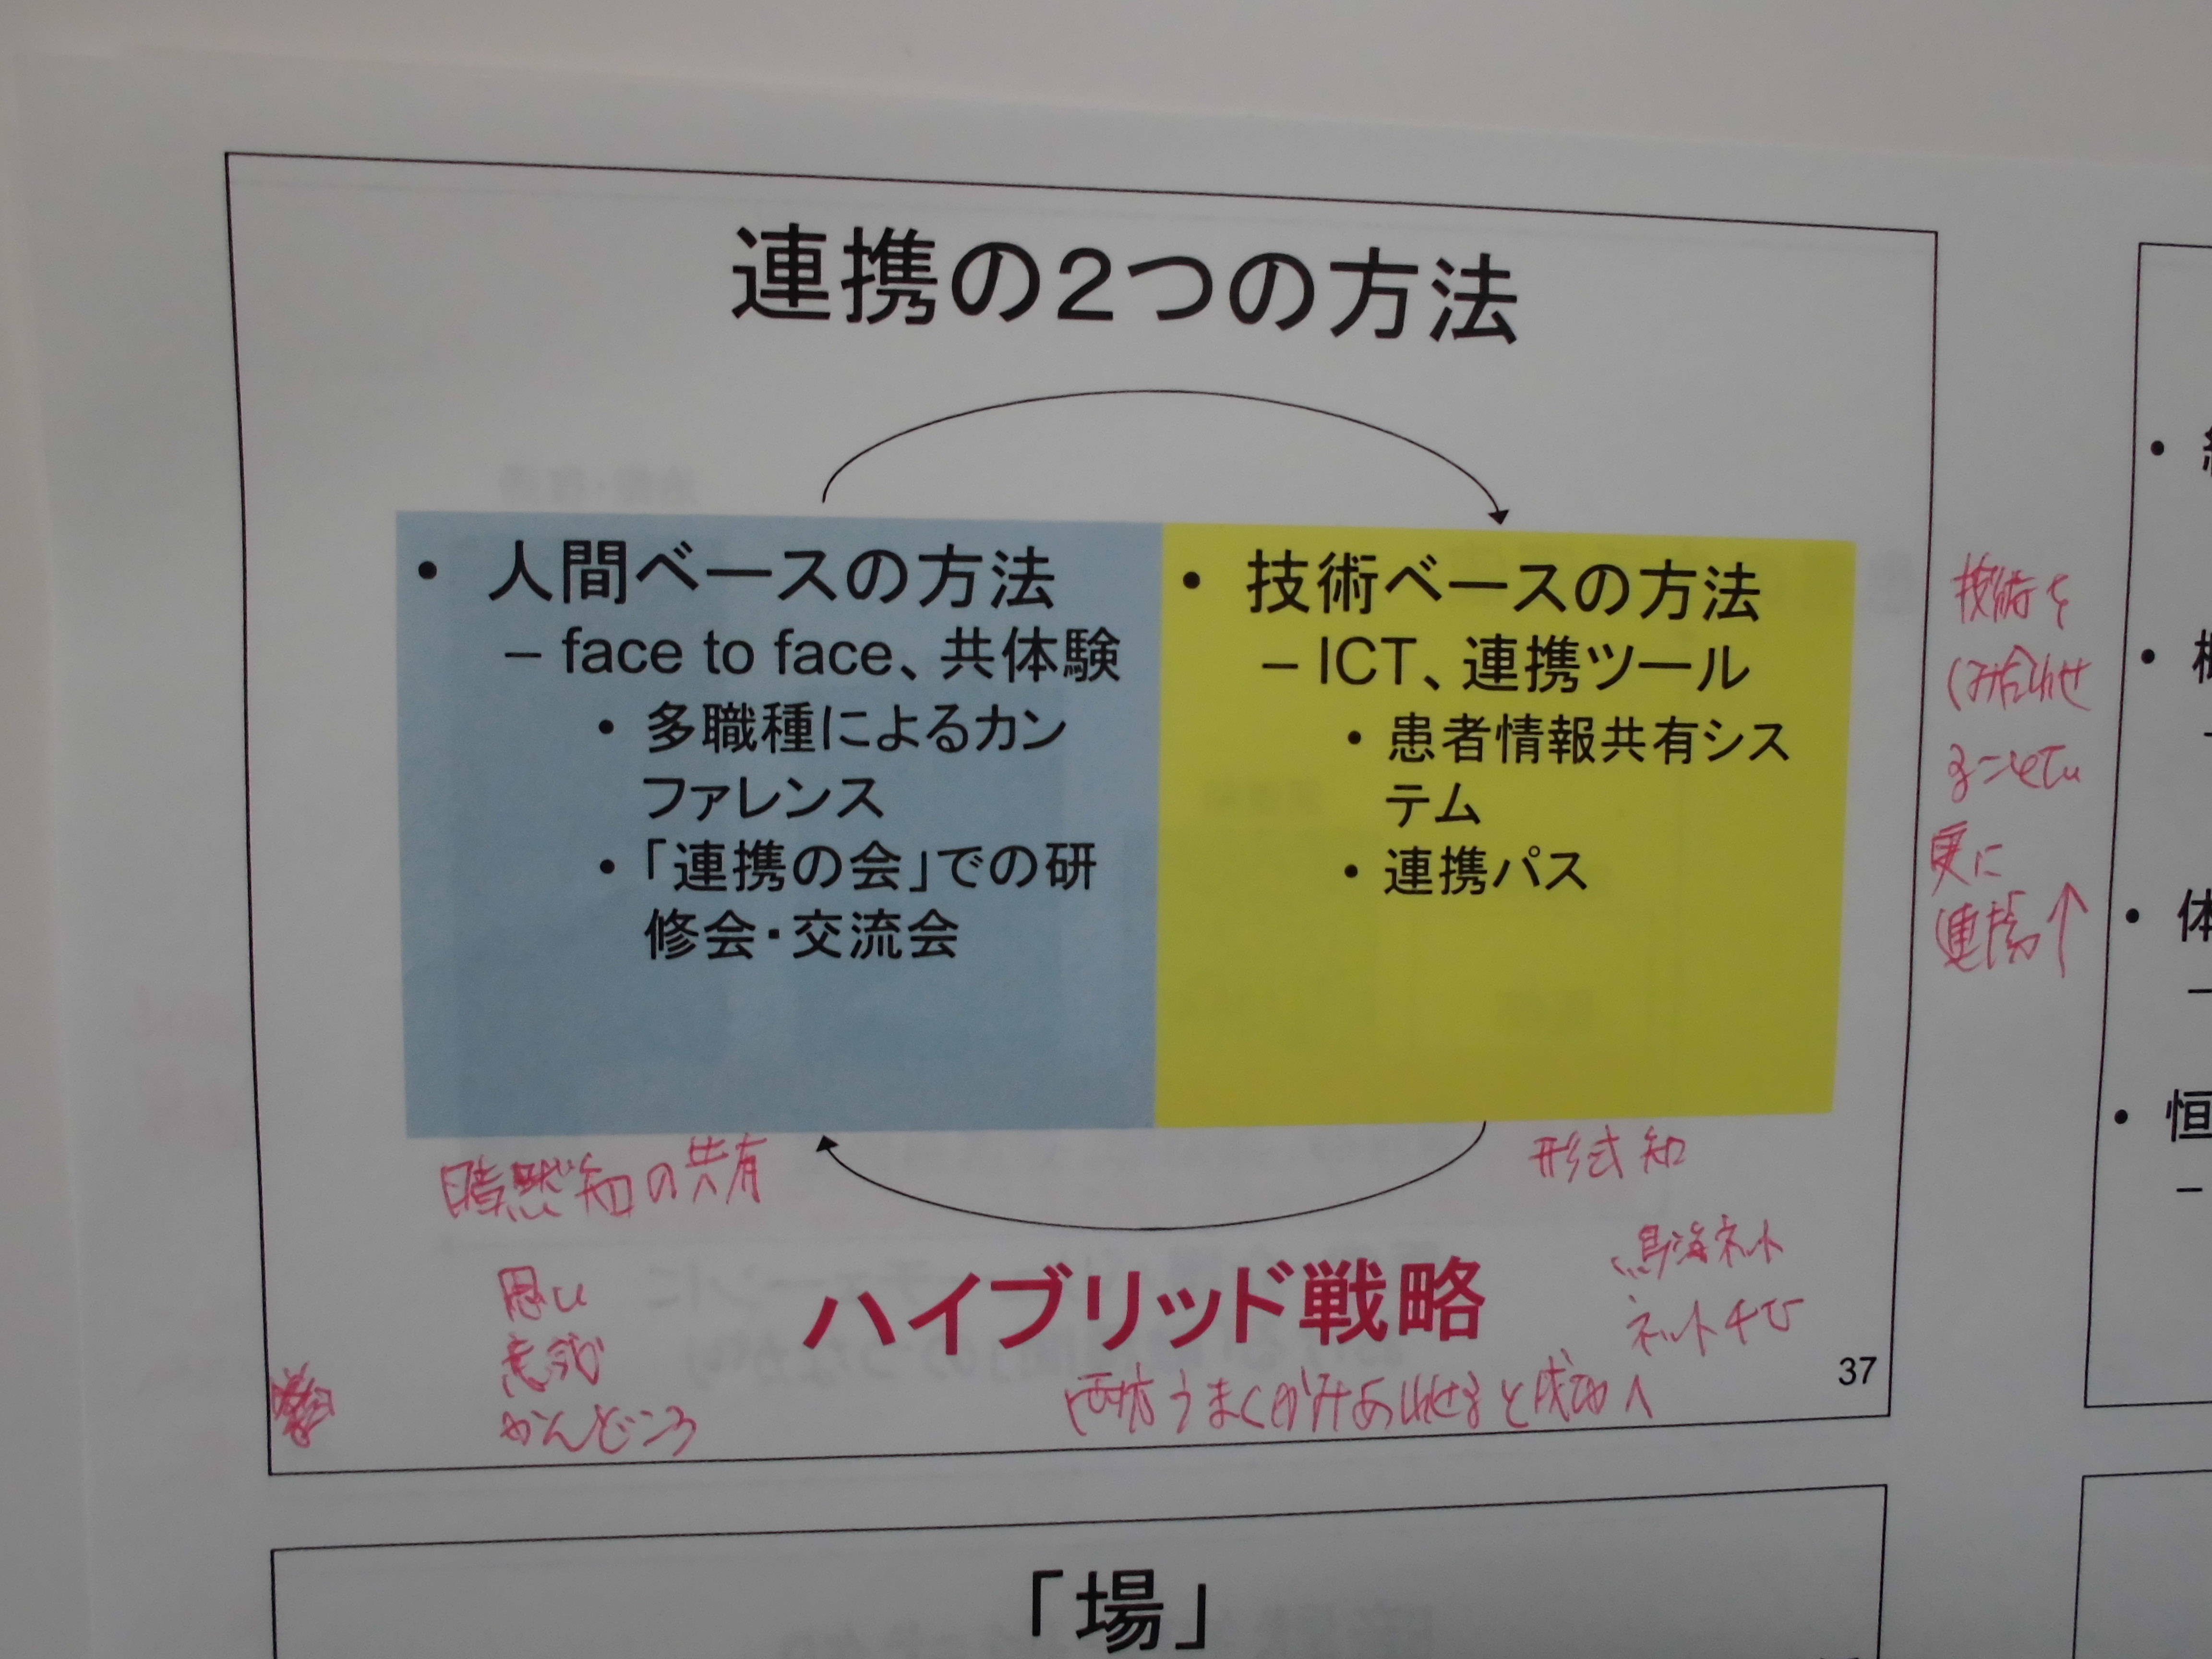 連携の2つの方法
• 人間ベースの方法
– face to face、共体験
• 多職種によるカン
ファレンス
• 「連携の会」での研
修会・交流会
• 技術ベースの方法
– ICT、連携ツール
• 患者情報共有シス
テム
• 連携パス
技術を
くみ合わせ
ることで
更に
連携↑
暗黙知の共有
形式知
思い
かんどころ
鳥海ネット
ネット
ハイブリッド戦略
両方うまくかみあわせると成功へ
37
「場」
•
•
• 体
–
• 恒
–